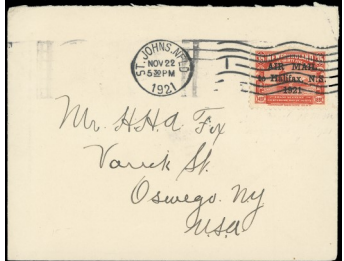 ST. JOHN'S, NFLD
NOV 22
5:30 PM
1921
AIR MAIL
to Halifax, N.S.
1921
Mr. H.H.A Fox
Varick St.
Oswego. Ny
U.S.A